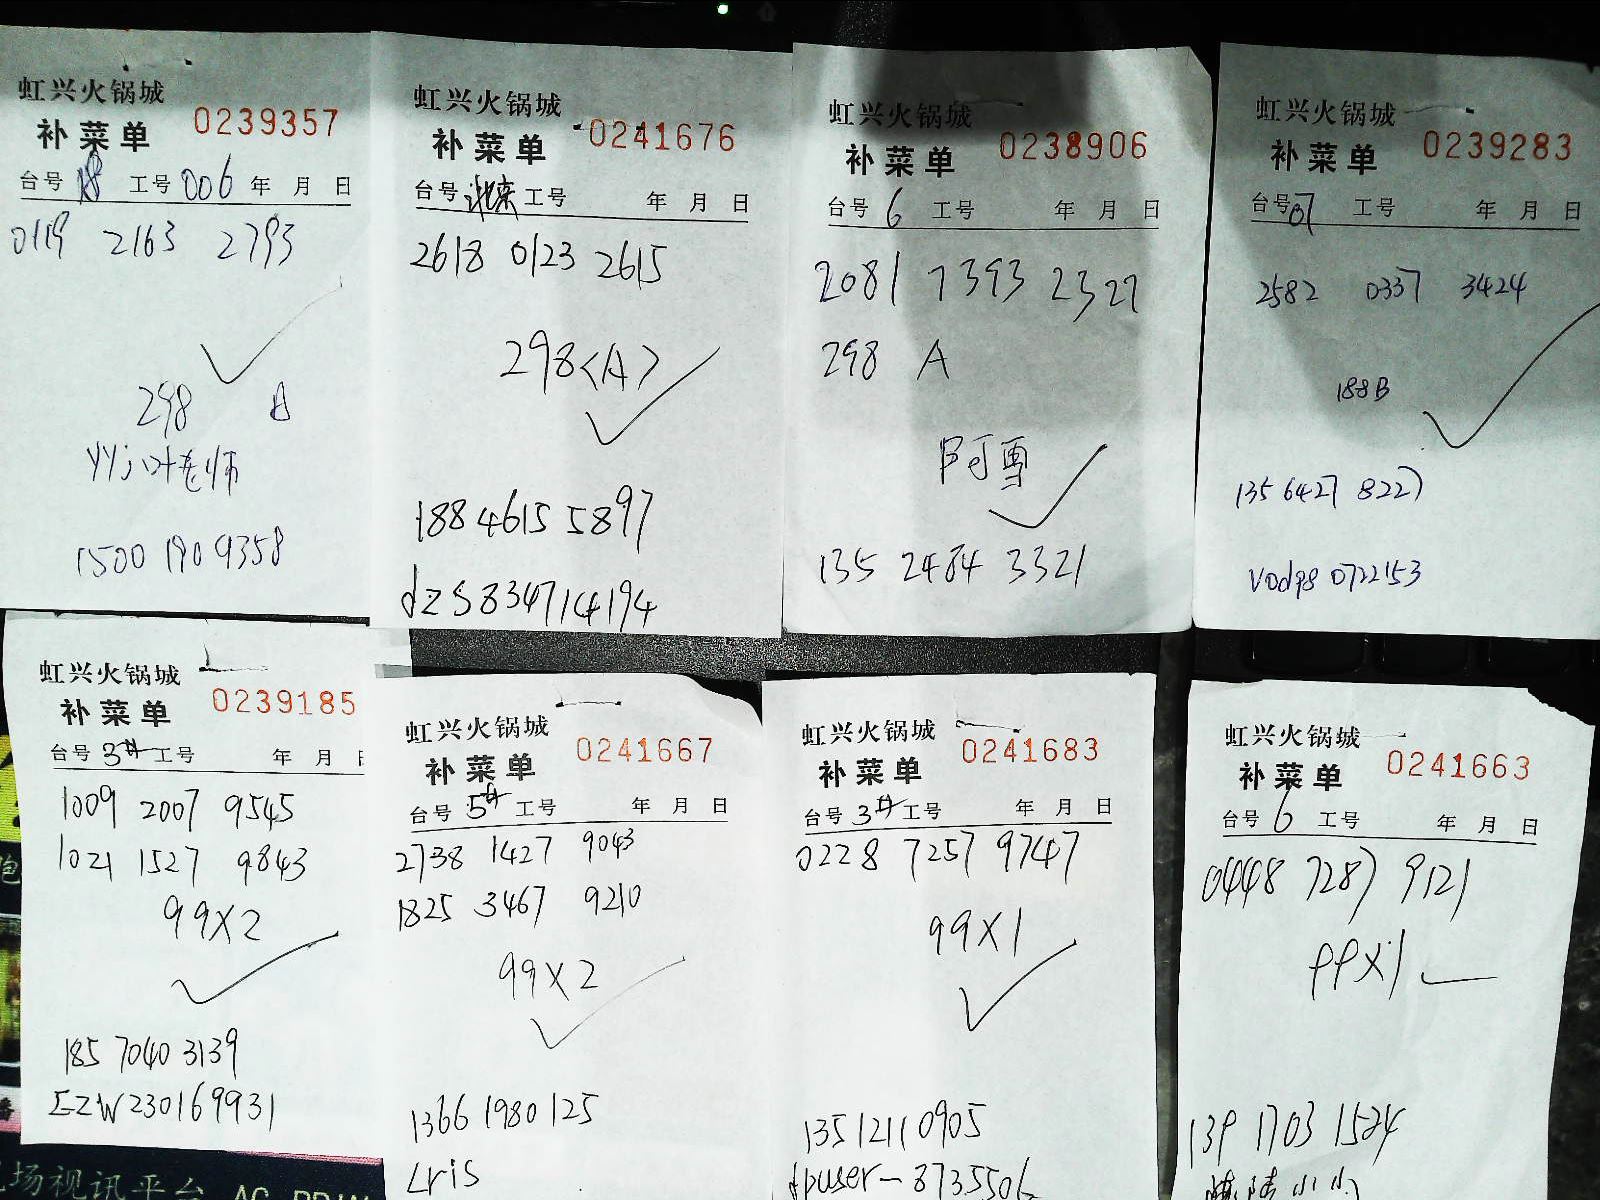 虹兴火锅城
补菜单 0239357
台号 18 工号 006 年 月 日
0119 2163 2793
298 A
YY:叶老师
1500 190 9358
虹兴火锅城
补菜单 0241676
台号 工号 年 月 日
2618 0123 2615
298<A>
188 4615 5897
dzs834714194
虹兴火锅城
补菜单 0238906
台号 6 工号 年 月 日
2081 7393 2327
298 A
阿雪
135 2484 3321
虹兴火锅城
补菜单 0239283
台号 07 工号 年 月 日
2582 0337 3424
188B
135 6427 8227
vodps 0722153
虹兴火锅城
补菜单 0239185
台号 3# 工号 年 月 日
1009 2007 9545
1021 1527 9843
99X2
185 7040 3139
EZW230169931
虹兴火锅城
补菜单 0241667
台号 5# 工号 年 月 日
2738 1427 9043
1825 3467 9210
99X2
1366 1980 125
Lris
虹兴火锅城
补菜单 0241683
台号 3# 工号 年 月 日
0228 7257 9747
99X1
135 1211 0905
dpuser-8735506
虹兴火锅城
补菜单 0241663
台号 6 工号 年 月 日
0448 7287 9121
99X1
139 1703 1524
场视讯平台